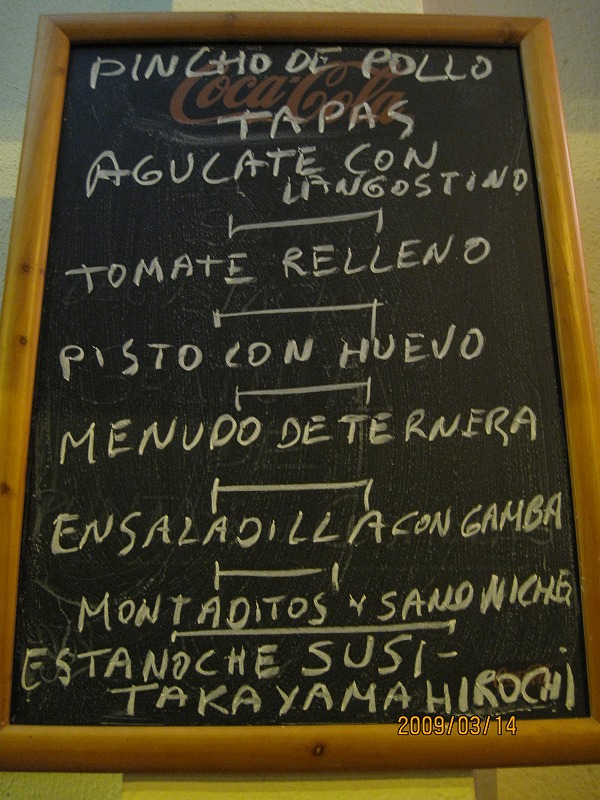 PINCHO DE POLLO
Coca-Cola
TAPAS
AGUCATE CON
LANGOSTINO
TOMATE RELLENO
PISTO CON HUEVO
MENUDO DE TERNERA
ENSALADILLA CON GAMBA
MONTADITOS Y SANDNICHE
ESTANOCHE SUSI-
TAKAYAMA HIROCHI
2009/03/14